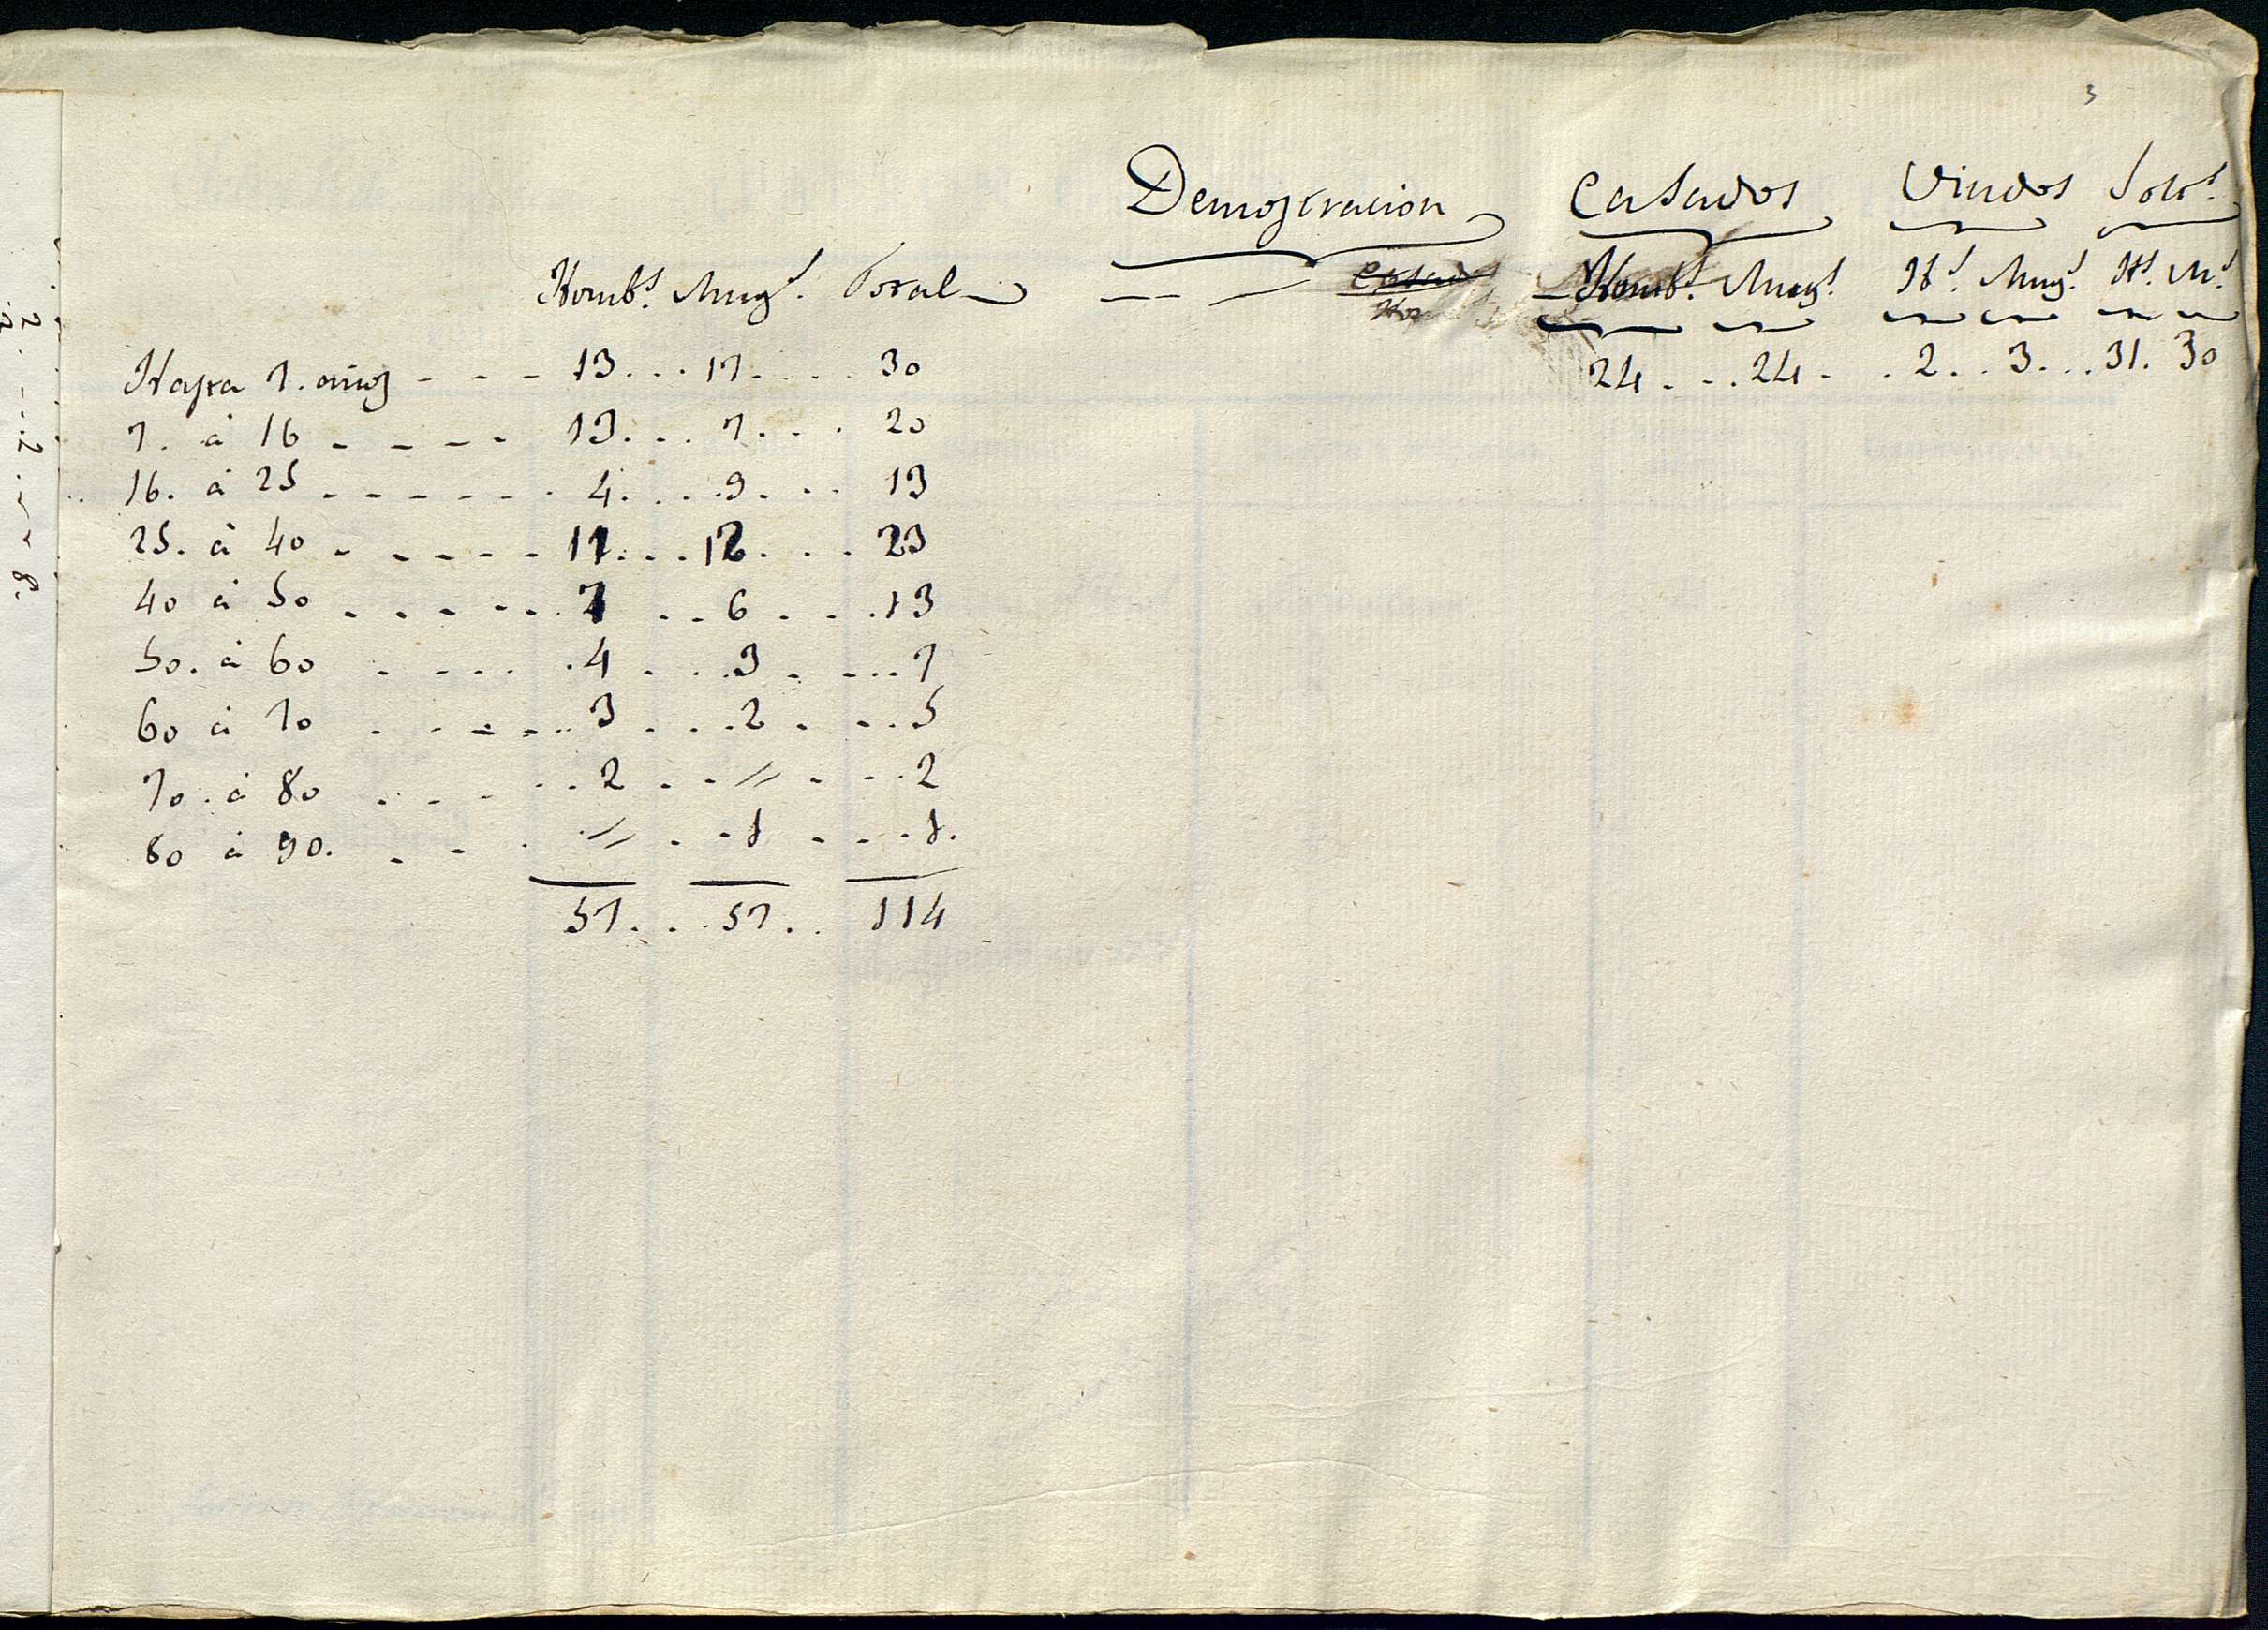 3
Homb.s Mug.s Total
Hasta 7. años - - - 13 . . . 17 . . . . 30
7. á 16 - - - - 13 . . . 7 . . . 20
16. á 25 - - - - - - 4 . . . . 9 . . . 13
25. á 40 - - - - - 11 . . . 12 . . . 23
40 á 50 - - - - - 7 . . 6 . . . 13
50. á 60 - - - - 4 . . . 3 . . . . 7
60 á 70 - - - - - 3 . . . 2 . . . . 5
70. á 80 - - - - - 2 . . = . . . 2
80 á 90. - - - = . . 1 . . . 1.
57 . . . 57 . . 114
Demostracion Casados Viudos Solt.s
Casad
Homb.s Mug.s H.s Mug.s H.s M.s
24 . . . 24 . . 2 . . 3 . . . 31. 30